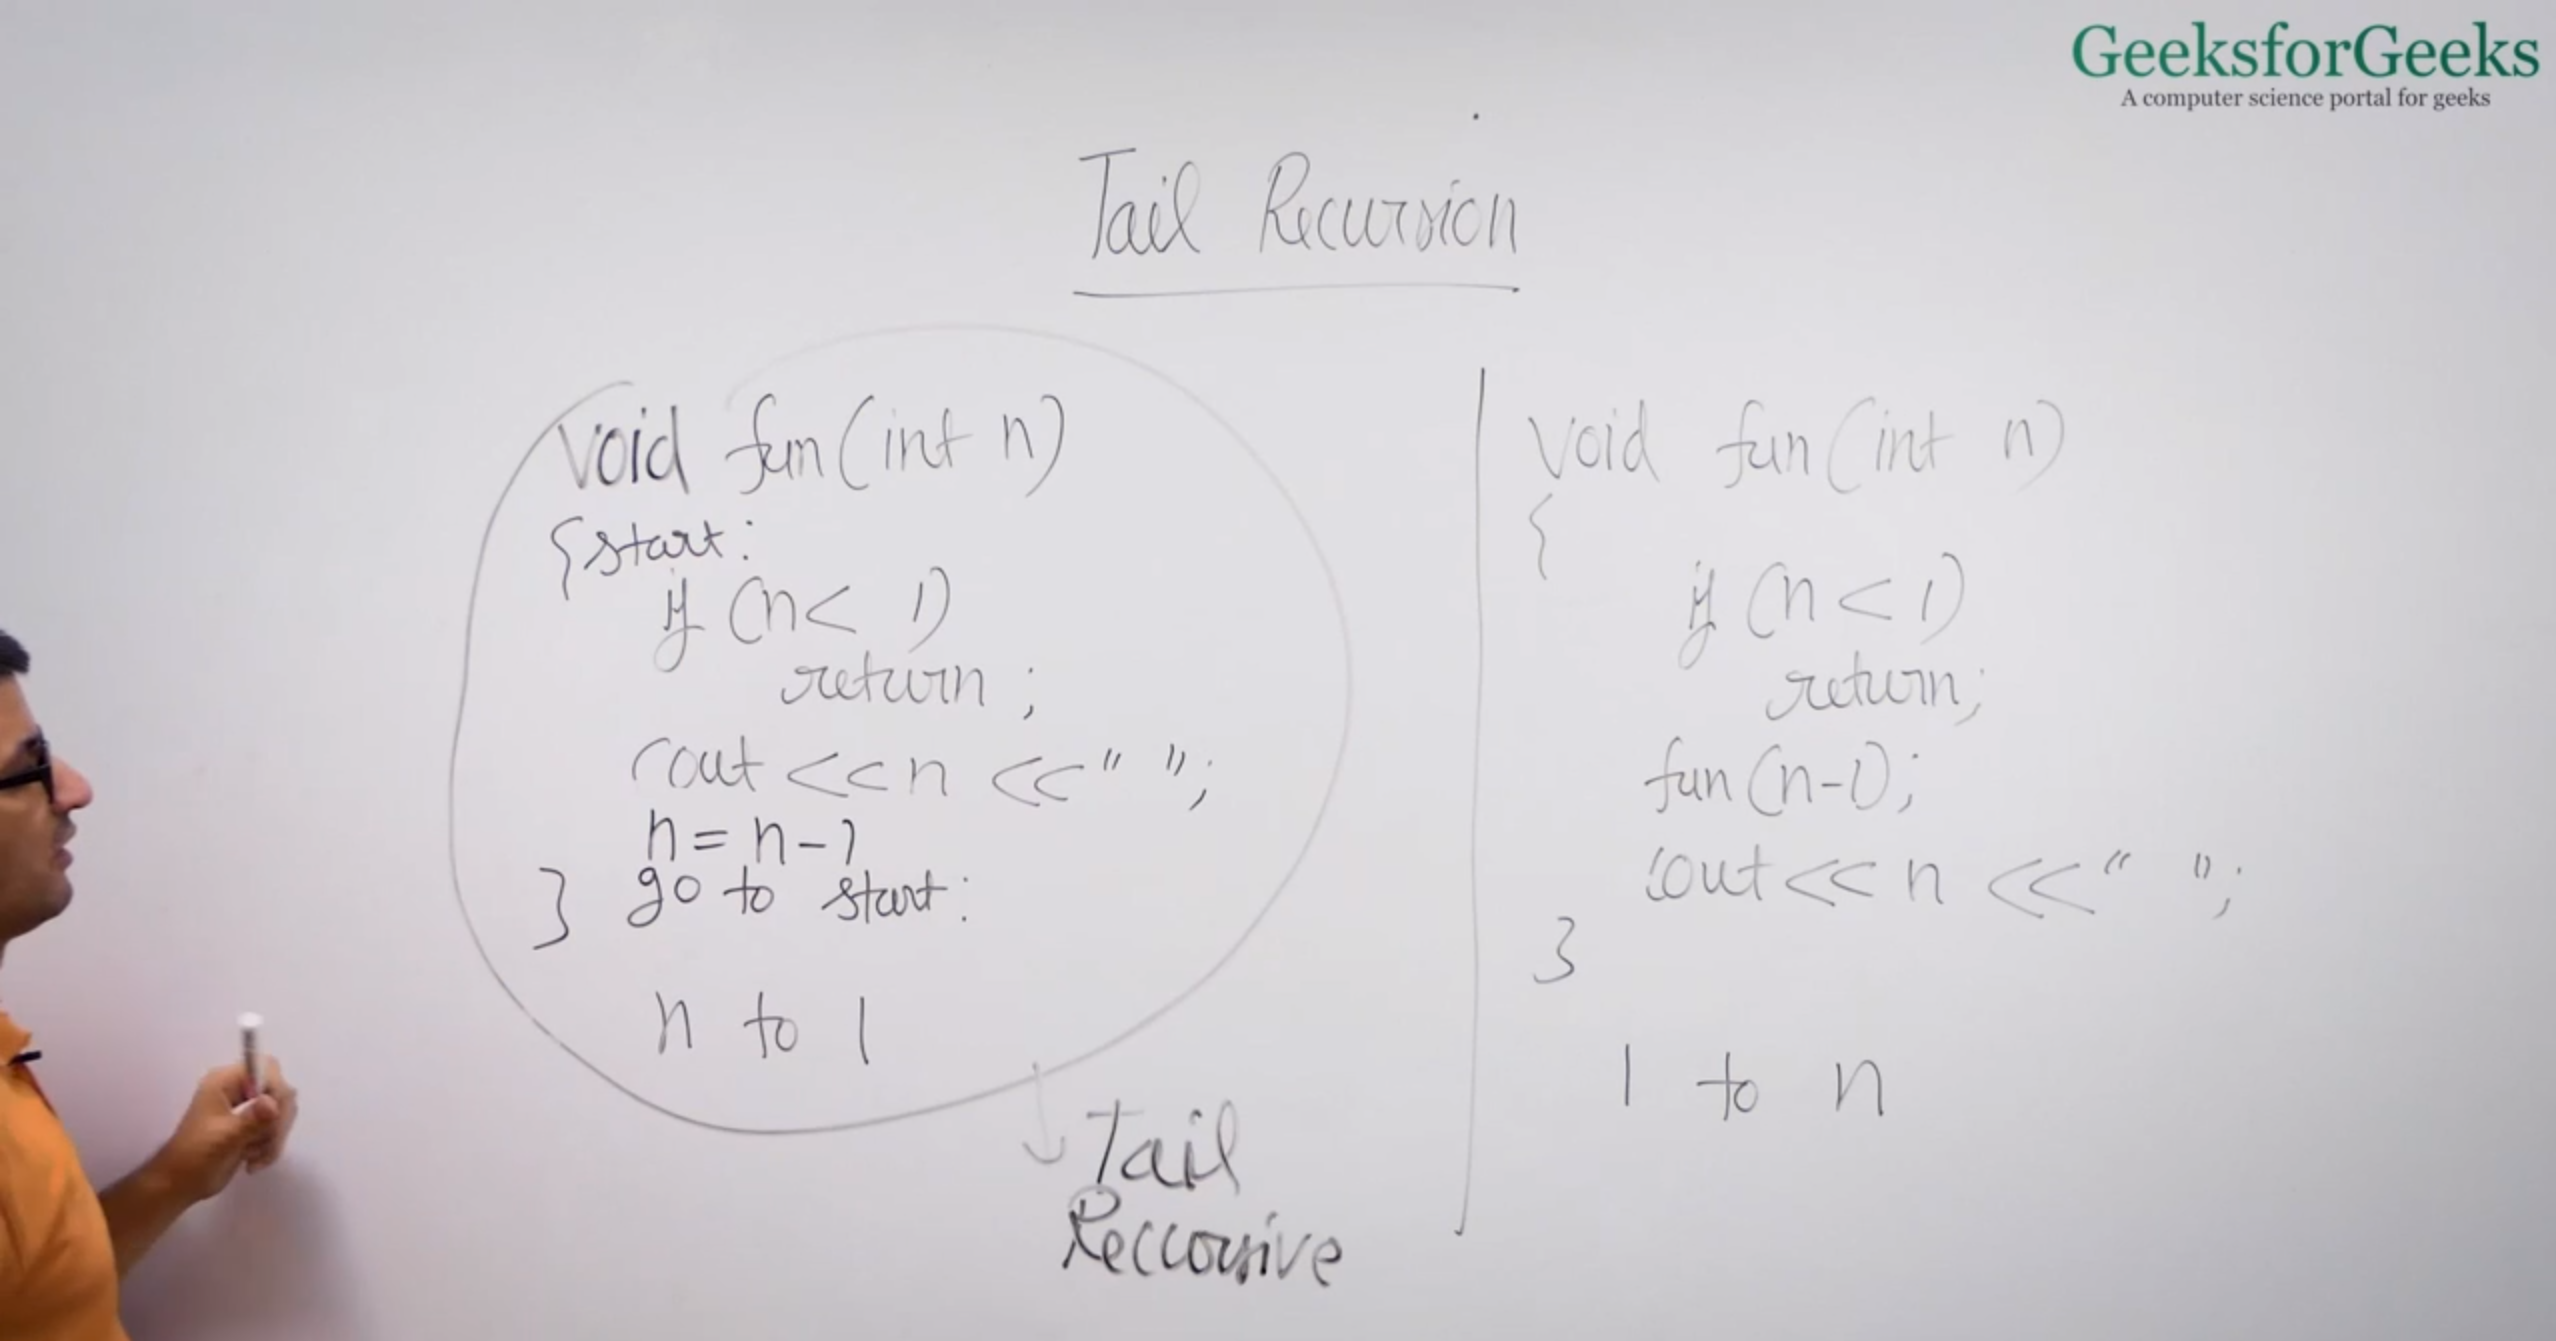 GeeksforGeeks
A computer science portal for geeks
Tail Recursion
void fun(int n)
{ start:
if (n< 1)
return ;
cout <<n <<" ";
n = n-1
} go to start:
n to 1
Tail
Reccorsive
void fun(int n)
{
if (n<1)
return;
fun(n-1);
cout<<n <<" ";
}
1 to n